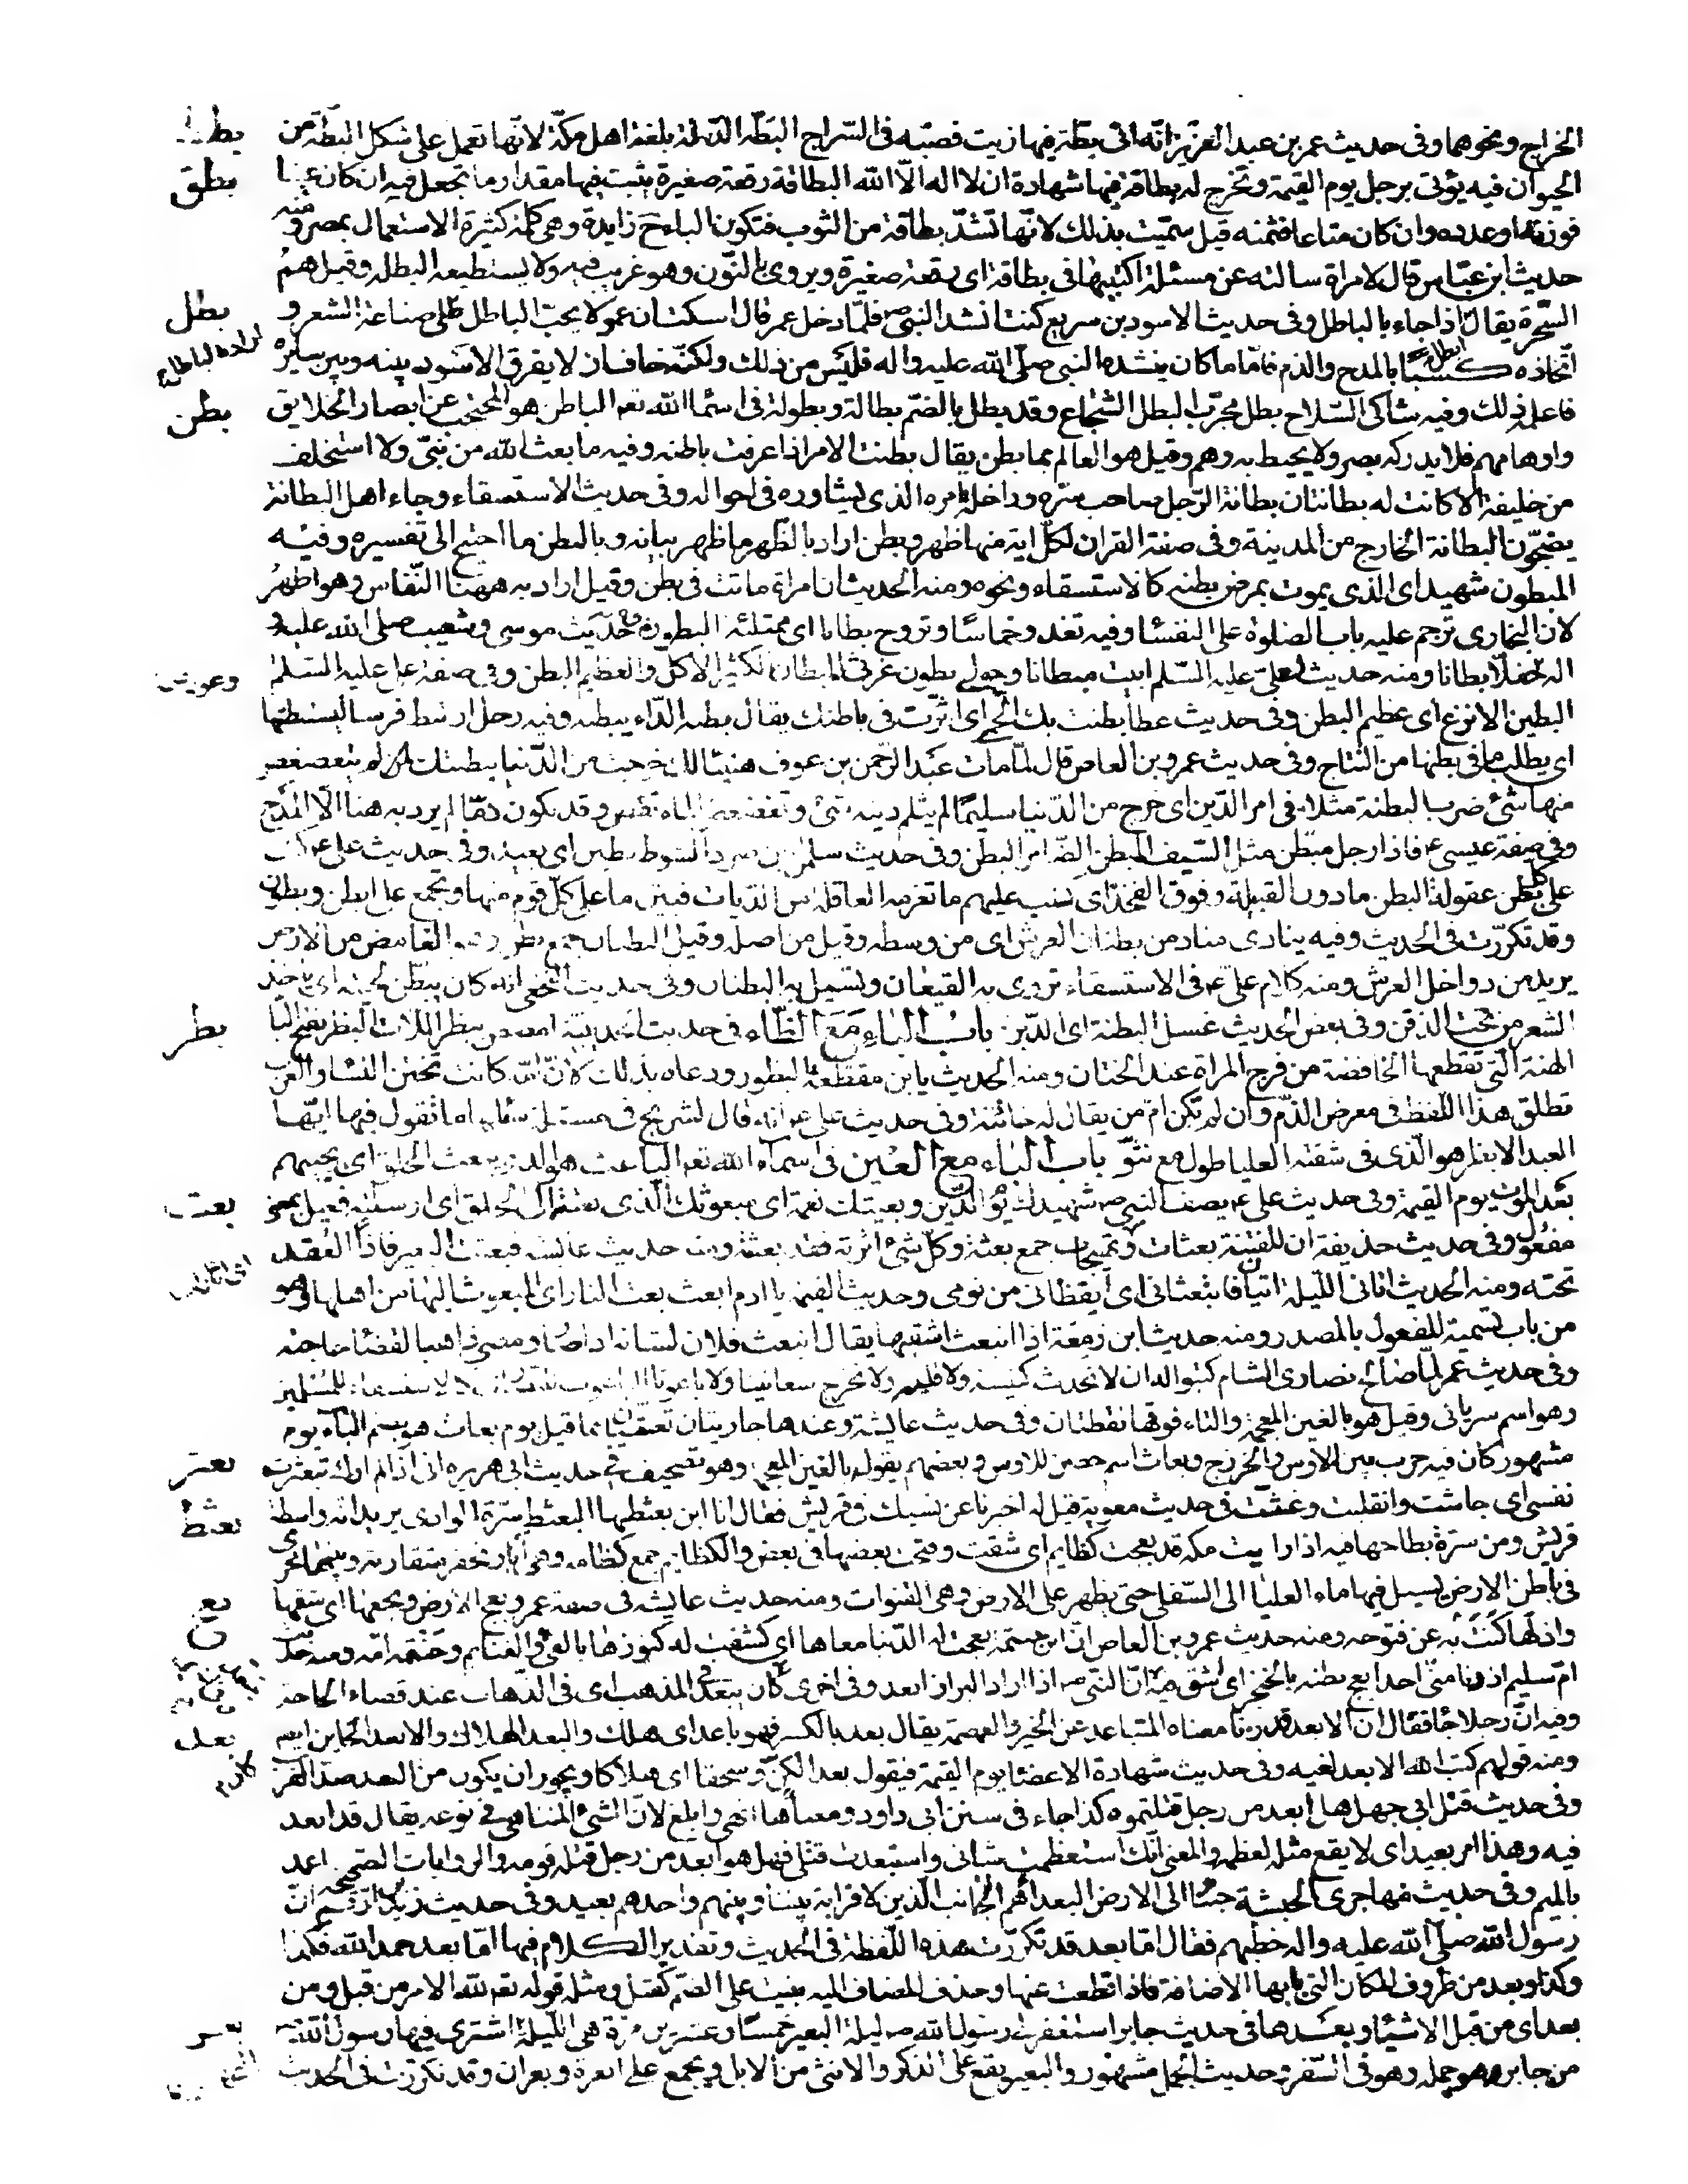 الخراج ونحوهما وفى حديث عمر بن عبد العزيز انّه اتى بطّة فيها زيت فصبّه فى السّراج البَطّة الدّبّة بلغة اهل مكّة لانّها تعمل على شكل البطّة من
الحيوان فيه يؤتى برجل يوم القيمة وتخرج له بطاقة فيها شهادة ان لا اله الّا الله البطاقة رقعة صغيرة يثبت فيها مقدار ما تجعل فيه ان كان عينا
فوزنه او عدده وان كان متاعا فثمنه قيل سمّيت بذلك لانّها تشدّ بطاقة من الثوب فتكون الباء ح زايدة وهى كلمة كثيرة الاستعمال بمصر ومنه
حديث ابن عبّاس قال لامراة سالته عن مسئلة اكتبيها فى بطاقة اى رقعة صغيرة ويروى بالنّون وهو غريب فيه ولا يستطيعه البطلة وقيل هم
السّحرة يقال اذا جاء بالباطل وفى حديث الاسود بن سريع كنت انشد النبى ص فلمّا دخل عمر قال اسكت ان عمر لا يحب الباطل صناعة الشعر و
اتّخاذه كسبًا بالمدح والذم فامّا ما كان ينشده النبى صلّى الله عليه واله فليس من ذلك ولكنّه خاف ان لا يفرق الاسود بينه وبين سايره
فاعلمه ذلك وفيه شاكى السّلاح بطل مجرّب البطل الشّجاع وقد بطل بالضمّ بطالة وبطولة فى اسماء الله تعم الباطن هو المحتجب عن ابصار الخلايق
واوهامهم فلا يدركه بصر ولا يحيط به وهم وقيل هو العالم بما بطن يقال بطنت الامر اذا عرفت باطنه وفيه ما بعث الله من نبىّ ولا استخلف
من خليفة الّا كانت له بطانتان بطانة الرّجل صاحب سرّه وداخلة امره الذى يشاوره فى احواله وفى حديث الاستسقاء وجاء اهل البطانة
يضجّون البطانة الخارج من المدينة وفى صفة القران لكلّ اية منها ظهر وبطن اراد بالظّهر ما ظهر بيانه وبالبطن ما احتيج الى تفسيره وفيه
المبطون شهيد اى الذى يموت بمرض بطنه كالاستسقاء ونحوه ومنه الحديث ان امراة ماتت فى بطن وقيل اراد به ههنا النّفاس وهو اظهر
لان البخارى ترجم عليه باب الصلوة على النفسا وفيه تغدو خماصًا وتروح بطانا اى ممتلئه البطون وفى حديث موسى وشعيب صلى الله عليه و
اله حفلا بطانا ومنه حديث على عليه السّلم ابيت مبطانا وحولى بطون غرثى المبطان الكثير الاكل والعظيم البطن وفى صفة على عليه السّلم
البطين الانزع اى عظيم البطن وفى حديث عطا بطنت بك الحمى اى اثّرت فى باطنك يقال بطنه الدّاء يبطنه وفيه رجل ارتبط فرسا ليستبطنها
اى يطلب ما فى بطنها من النتاج وفى حديث عمرو بن العاص قال لمّا مات عبد الرّحمن بن عوف هنيئا لك خرجت من الدّنيا ببطنتك لم يتغضغض
منها شئ ضرب البطنة مثلا فى امر الدّين اى خرج من الدّنيا سليمًا لم يثلم دينه شئ وتغضغض الماء نقص وقد يكون ذمّا لم يرد به هنا الّا المدح
وفى صفة عيسى ع فاذا رجل مبطّن مثل السّيف المبطن الضّامر البطن وفى حديث سلمن بن صرد الشوط بطين اى بعيد وفى حديث على ع كتب
على كل بطن عقولة البطن ما دون القبيلة وفوق الفخذ اى كتب عليهم ما تغرمه العاقلة من الديات فبيّن ما على كلّ قوم منها ويجمع على ابطن وبطون
وقد تكرّرت فى الحديث وفيه ينادى مناد من بطنان العرش اى من وسطه وقيل من اصله وقيل البطنان جمع بطن وهو الغامض من الارض
يريد من دواخل العرش ومنه كلام على ع فى الاستسقاء تروى به القيعان وتسيل به البطنان وفى حديث النخعى انه كان يبطّن لحيته اى ياخذ
الشعر من تحت الذقن وفى بعض الحديث غسل البطنة اى الدّبر باب الباء مع الظّاء فى حديث الحديبية امصص ببظر اللّات البظر بفتح البا
الهنة التى تقطعها الخافضة من فرج المراة عند الختان ومنه الحديث يا ابن مقطّعة البظور ودعاه بذلك لانّ امّه كانت تختن النسا والعرب
تطلق هذا اللّفظ فى معرض الذّم وان لم تكن امّ من يقال له خاتنة وفى حديث على ع انّه قال لشريح فى مسئلة سئلها ما تقول فيها ايّها
العبد الابظر هو الّذى فى شفته العليا طول مع نتوّ باب الباء مع العين فى اسماء الله تعم الباعث هو الذى يبعث الخلق اى يحييهم
بعد الموت يوم القيمة وفى حديث على ع يصف النبى ص شهيدك يوم الدّين وبعيثك نعمة اى مبعوثك الّذى بعثته الى الخلق اى ارسلته فعيل بمعنى
مفعول وفى حديث حذيفة ان للفتنة بعثات وتهييجات جمع بعثة وكلّ شئ اثرته فقد بعثته ومنه حديث عايشة فبعثت البعير فاذا العقد
تحته ومنه الحديث اتانى اللّيلة اتيان فابتعثانى اى ايقظانى من نومى وحديث القيمة يا ادم ابعث بعث النار اى المبعوث اليها من اهلها وهو
من باب تسمية المفعول بالمصدر ومنه حديث ابن زمعة اذا انبعث اشقيها يقال انبعث فلان لشانه اذا ثار ومضى ذاهبا لقضاء حاجته
وفى حديث عمر لمّا صالح نصارى الشام كتبوا له ان لا نحدث كنيسة ولا قلية ولا نخرج سعانينا ولا باعوثا الباعوث للنصارى كالاستسقاء للمسلمين
وهو اسم سريانى وقيل هو بالغين المعجمة والتاء فوقها نقطتان وفى حديث عايشة وعندها جاريتان تغنّيان بما قيل يوم بعاث هو بضم الباء يوم
مشهور كان فيه حرب بين الاوس والخزرج وبعاث اسم حصن للاوس وبعضهم يقوله بالغين المعجمة وهو تصحيف فى حديث ابى هريرة انى اذا لم ارك تبعثرت
نفسى اى جاشت وانقلبت وغثت فى حديث معوية قيل له اخبرنا عن نسبك فى قريش فقال انا ابن بعثطها البعثط سرّة الوادى يريد انه واسطة
قريش ومن سرّة بطاحها فيه اذا رايت مكة قد بعجت كظايم اى شقت وفتحت بعضها فى بعض والكظايم جمع كظامه وهى ابار تحفر متقاربة وبينها مجرى
فى باطن الارض يسيل فيها ماء العليا الى السّفلى حتى يظهر على الارض وهى القنوات ومنه حديث عايشة فى صفة عمر وبعج الارض وبخعها اى شقّها
واذلّها كنت به عن فتوحه ومنه حديث عمرو بن العاص انّ ابن حنتمة بعجت له الدّنيا معاها اى كشفت له كنوزها بالفئ والغنايم وحنتمه امّه ومنه حديث
امّ سليم ان دنا منّى احد ابعج بطنه بالخنجر اى اشقّ فيه انّ النّبى ص اذا اراد البراز ابعد وفى اخرى كان يتبعّد فى المذهب اى فى الذّهاب عند قضاء الحاجة
وفيه انّ رجلا جا فقال ان الابعد قد زنا معناه المتباعد عن الخير والعصمة يقال بعد بالكسر فهو باعد اى هلك والبعد الهلاك والابعد الخاين ايضا
ومنه قولهم كبّ الله الابعد لفيه وفى حديث شهادة الاعضا يوم القيمة فيقول بعدا لكنّ وسحقا اى هلاكا ويجوز ان يكون من البعد ضد القرب
وفى حديث قتل ابى جهل هل ابعد من رجل قتلتموه كذا جاء فى سنن ابى داود ومعناها انهى وابلغ لانّ الشئ المتناهى فى نوعه يقال قد ابعد
فيه وهذا امر بعيد اى لا يقع مثله لعظمه والمعنى انّك استعظمت شانى واستبعدت قتلى فهل هو ابعد من رجل قتله قومه والروايات الصّحيحة اعمد
بالميم وفى حديث مهاجرى الحبشة جئنا الى الارض البعداء هم الاجانب الّذين لا قرابة بيننا وبينهم واحدهم بعيد وفى حديث زيد بن ارقم انّ
رسول الله صلّى الله عليه واله خطبهم فقال امّا بعد قد تكرّرت هذه اللّفظة فى الحديث وتقدير الكلام فيها امّا بعد حمد الله فكذا
وكذا وبعد من ظروف المكان التى بابها الاضافة فاذا قطعت عنها وحذف المضاف اليه بنيت على الضمّ كقبل ومثله قوله تعم لله الامر من قبل ومن
بعد اى من قبل الاشياء وبعدها فى حديث جابر استغفر لى رسول الله ص ليلة البعير خمسًا وعشرين مرة هى اللّيلة اشترى فيها رسول الله ص
من جابر جمله وهو فى السّفر وحديث الجمل مشهور والبعير يقع على الذكر والانثى من الابل ويجمع على ابعرة وبعران وقد تكرّرت فى الحديث
بطق
بطل
بطن
بظر
بعث
بعثر
بعثط
بعج
بعد
بعر